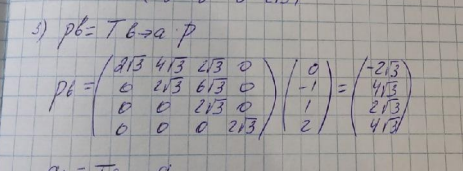 3) pb = T b→a · p
pb = (2√3 4√3 2√3 0
0 2√3 6√3 0
0 0 2√3 0
0 0 0 2√3) (0
-1
1
2) = (-2√3
4√3
2√3
4√3)